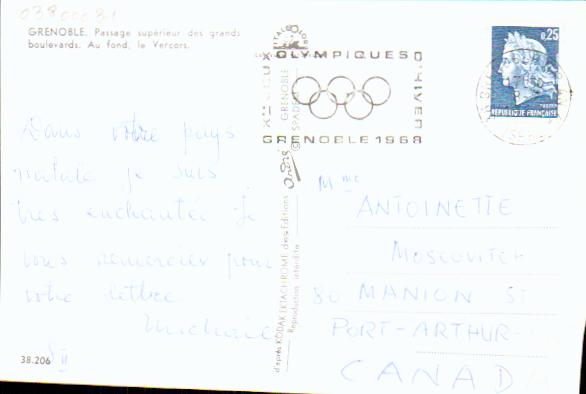 03800031
GRENOBLE. Passage supérieur des grands
boulevards. Au fond, le Vercors.
Dans votre pays
natale je suis
très enchantée. Je
vous remercier pour
votre lettre
38.206
Xes JEUX OLYMPIQUES D'HIVER
GRENOBLE 1968
GRENOBLE
SPADEM
d'après KODAK EKTACHROME des Editions
Reproduction interdite
0,25
REPUBLIQUE FRANÇAISE
Mme
ANTOINETTE
MOSCOVITCH
80 MANION ST
PORT-ARTHUR-
CANADA